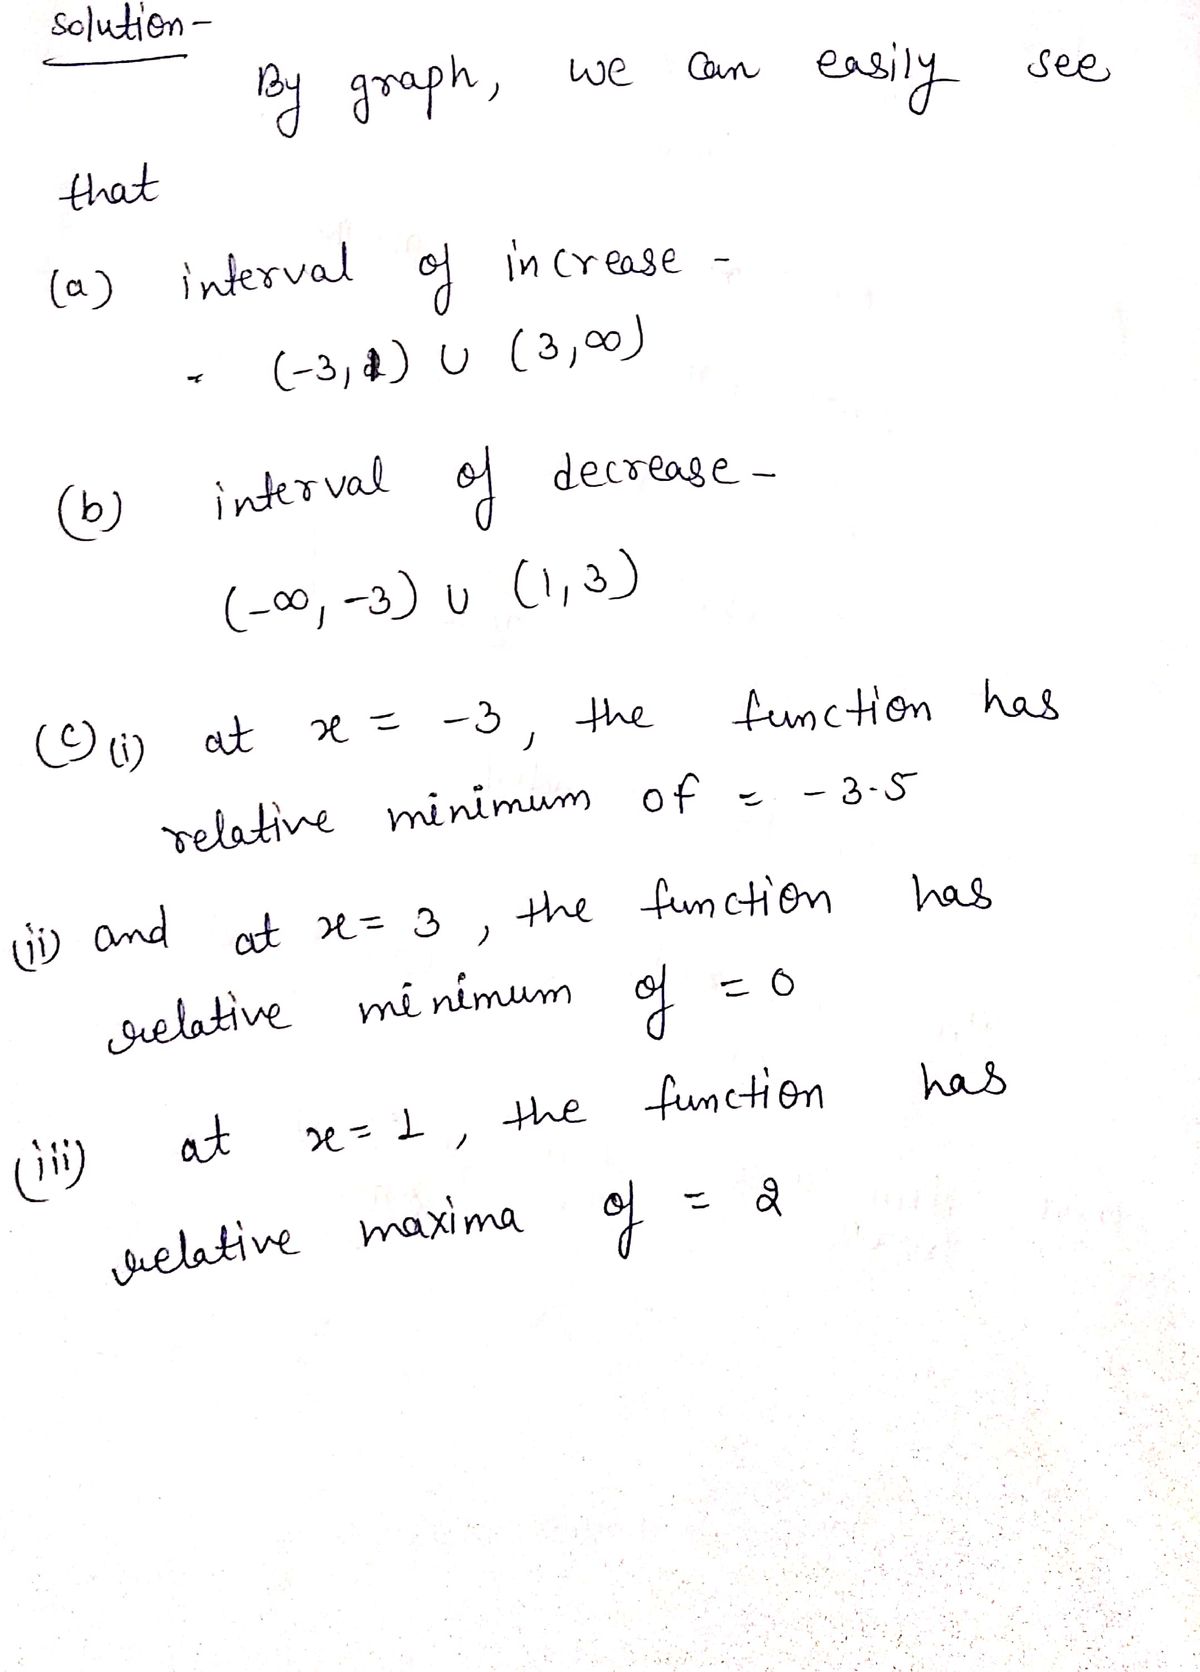 solution-
By graph, we can easily see
that
(a) interval of increase -
(-3, 1) ∪ (3,∞)
(b) interval of decrease -
(-∞, -3) ∪ (1,3)
(c) (i) at x = -3, the function has
relative minimum of = -3.5
(ii) and at x = 3, the function has
relative minimum of = 0
(iii) at x = 1, the function has
relative maxima of = 2